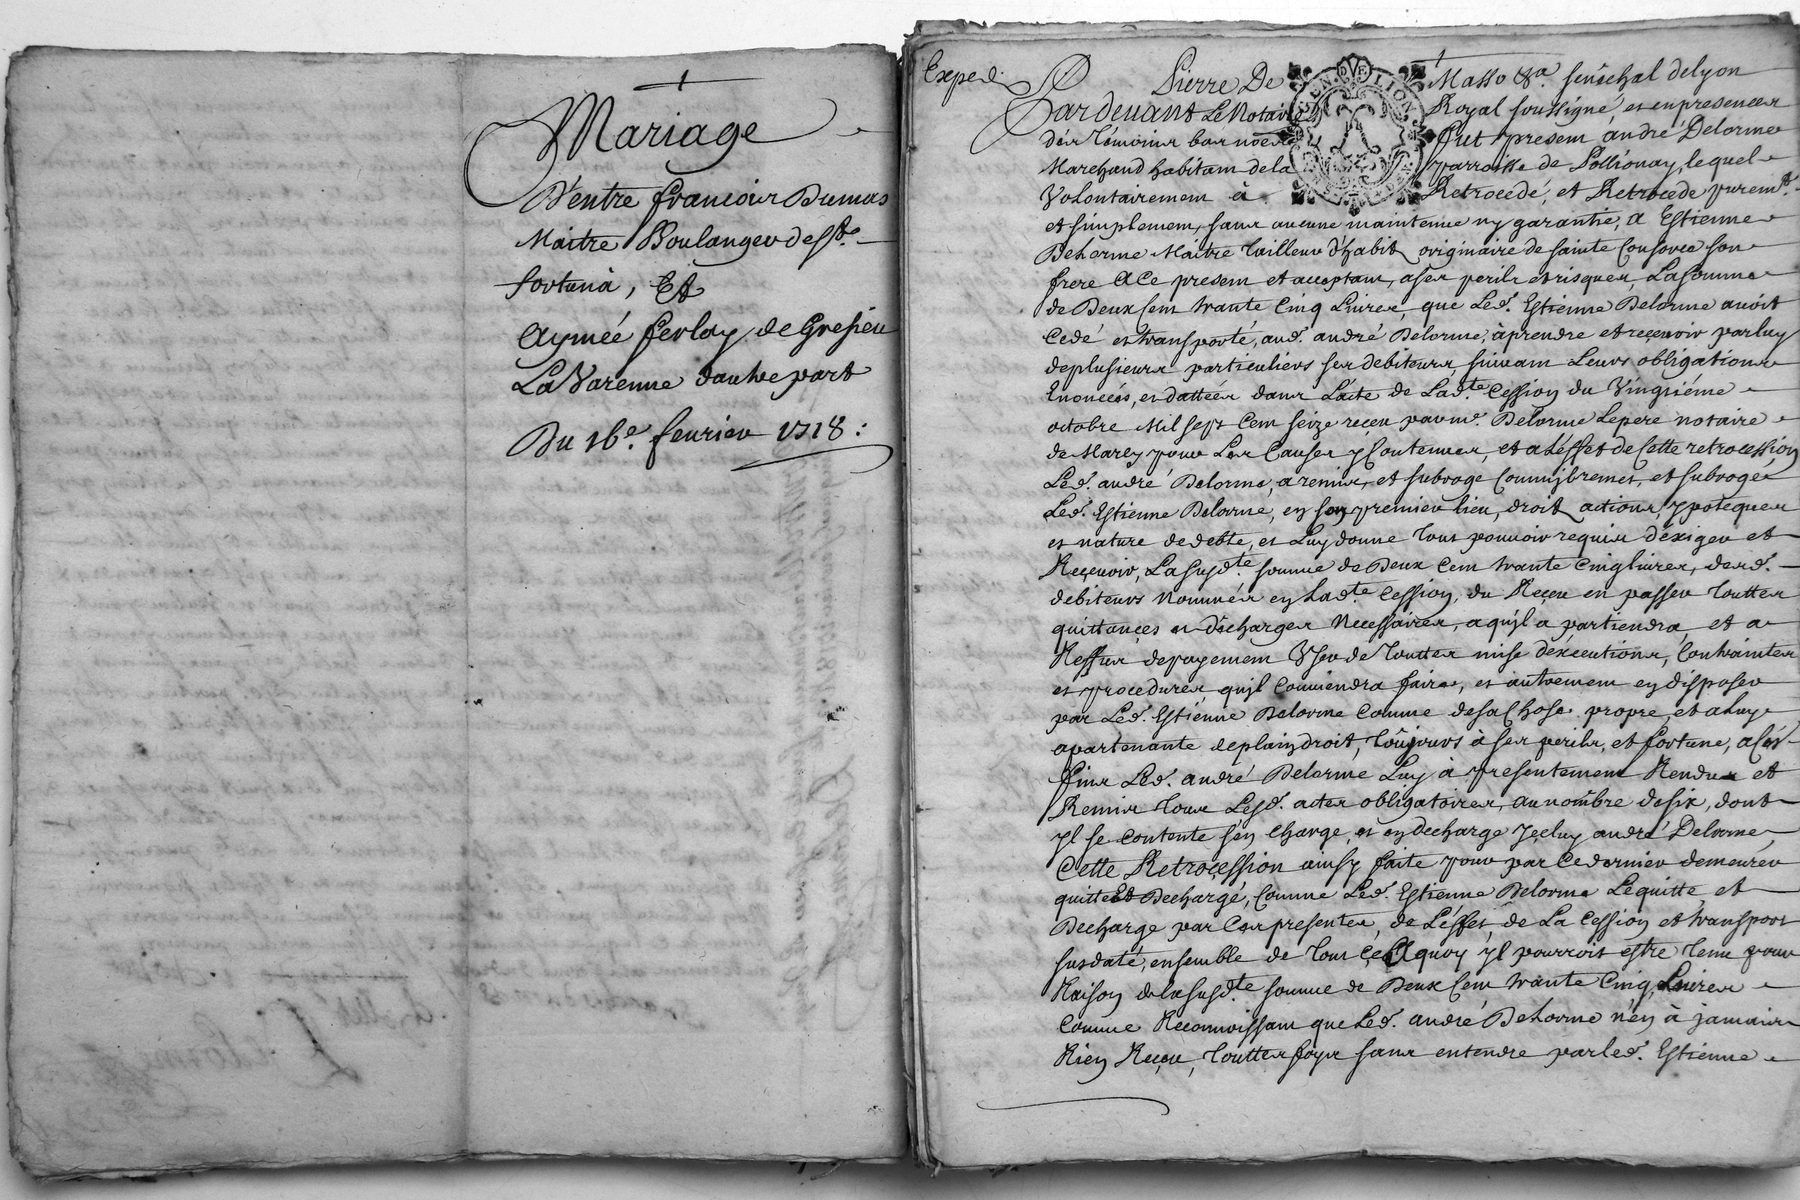 Mariage
D'entre francois Dumas
Maitre Boulanger de Ste.
fortuna, Et
Aymée ferlay de Gresieu
La Varenne d'autre part
Du 16e. feurier 1718:
Exped.
Pierre De Masso &a. senéchal delyon
Pardeuant Le Notaire Royal soussigné et enpresences
dés témoins bas només Fut present ándré Delorme
Marchand habitant de la parroisse de Pollionay, lequel
Volontairement à Retrocedé, et Retrocede puremt.
et simplement, sans aucune maintenue ny garantie, a Estienne
Delorme Maitre tailleur d'habit originaire de sainte Consorce son
frere a Ce present et acceptant, a ses perils et risques, La somme
de Deux Cent trante Cinq Liures, que Led. Estienne Delorme auoit
Cedé et transporté, aud. andré Delorme, à prendre et reçeuoir par luy
deplusieurs particuliers ses debiteurs suiuant Leurs obligations
Enoncées, et dattées dans L'acte de Ladte. Cession du Vingtiéme
octobre Mil sept Cent seize reçeu par me. Delorme Lepere notaire
de Marcy pour Les Causes y Contenues, et a L'effet de Cette retrocession
Led. andré Delorme, a remis, et subrogé Comme
Led. Estienne Delorme, en son premier lieu, droit actions, ypoteques
et nature dedebte, et Luy donne tout pouuoir requis d'exiger et
Reçeuoir, La susdte. somme de Deux Cent trante Cinq liures, desd.
debiteurs nommés en Ladte. Cession, du Reçeu en passer touttes
quittançes et décharges Necessaires, a qu'jl apartiendra, et a
Reffus depayement Vser de touttes mise d'éxecutions, Contraintes
et procedures qu'jl Conuiendra faire, et autrement en disposer
par Led. Estienne Delorme Comme desa Chose propre, et a Luy
apartenante deplain droit, toujours à ses perils, et fortune, a Ces
fins Led. andré Delorme Luy à presentement Rendus et
Remis tous Lesd. actes obligatoires, au nombre desix, dont
yl se contente s'en charge et en decharge yceluy andré Delorme
Cette Retroçession ainsy faite pour par Cedernier demeurer
quitte Et Dechargé, Comme Led. Estienne Delorme Lequitte, et
Decharge par Ces presentes, de L'effet, de La Cession et transport
susdaté, ensemble de tout Ce A quoy yl pourroit estre tenu pour
Raison delasusdte. somme de Deux Cent trante Cinq Liures
Comme Reconnoissant que Led. andré Delorme n'en à jamais
Rien Reçeu, touttesfoys sans entendre parled. Estienne